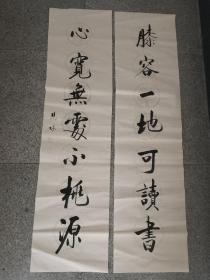 膝容一地可讀書
心寬無處不桃源